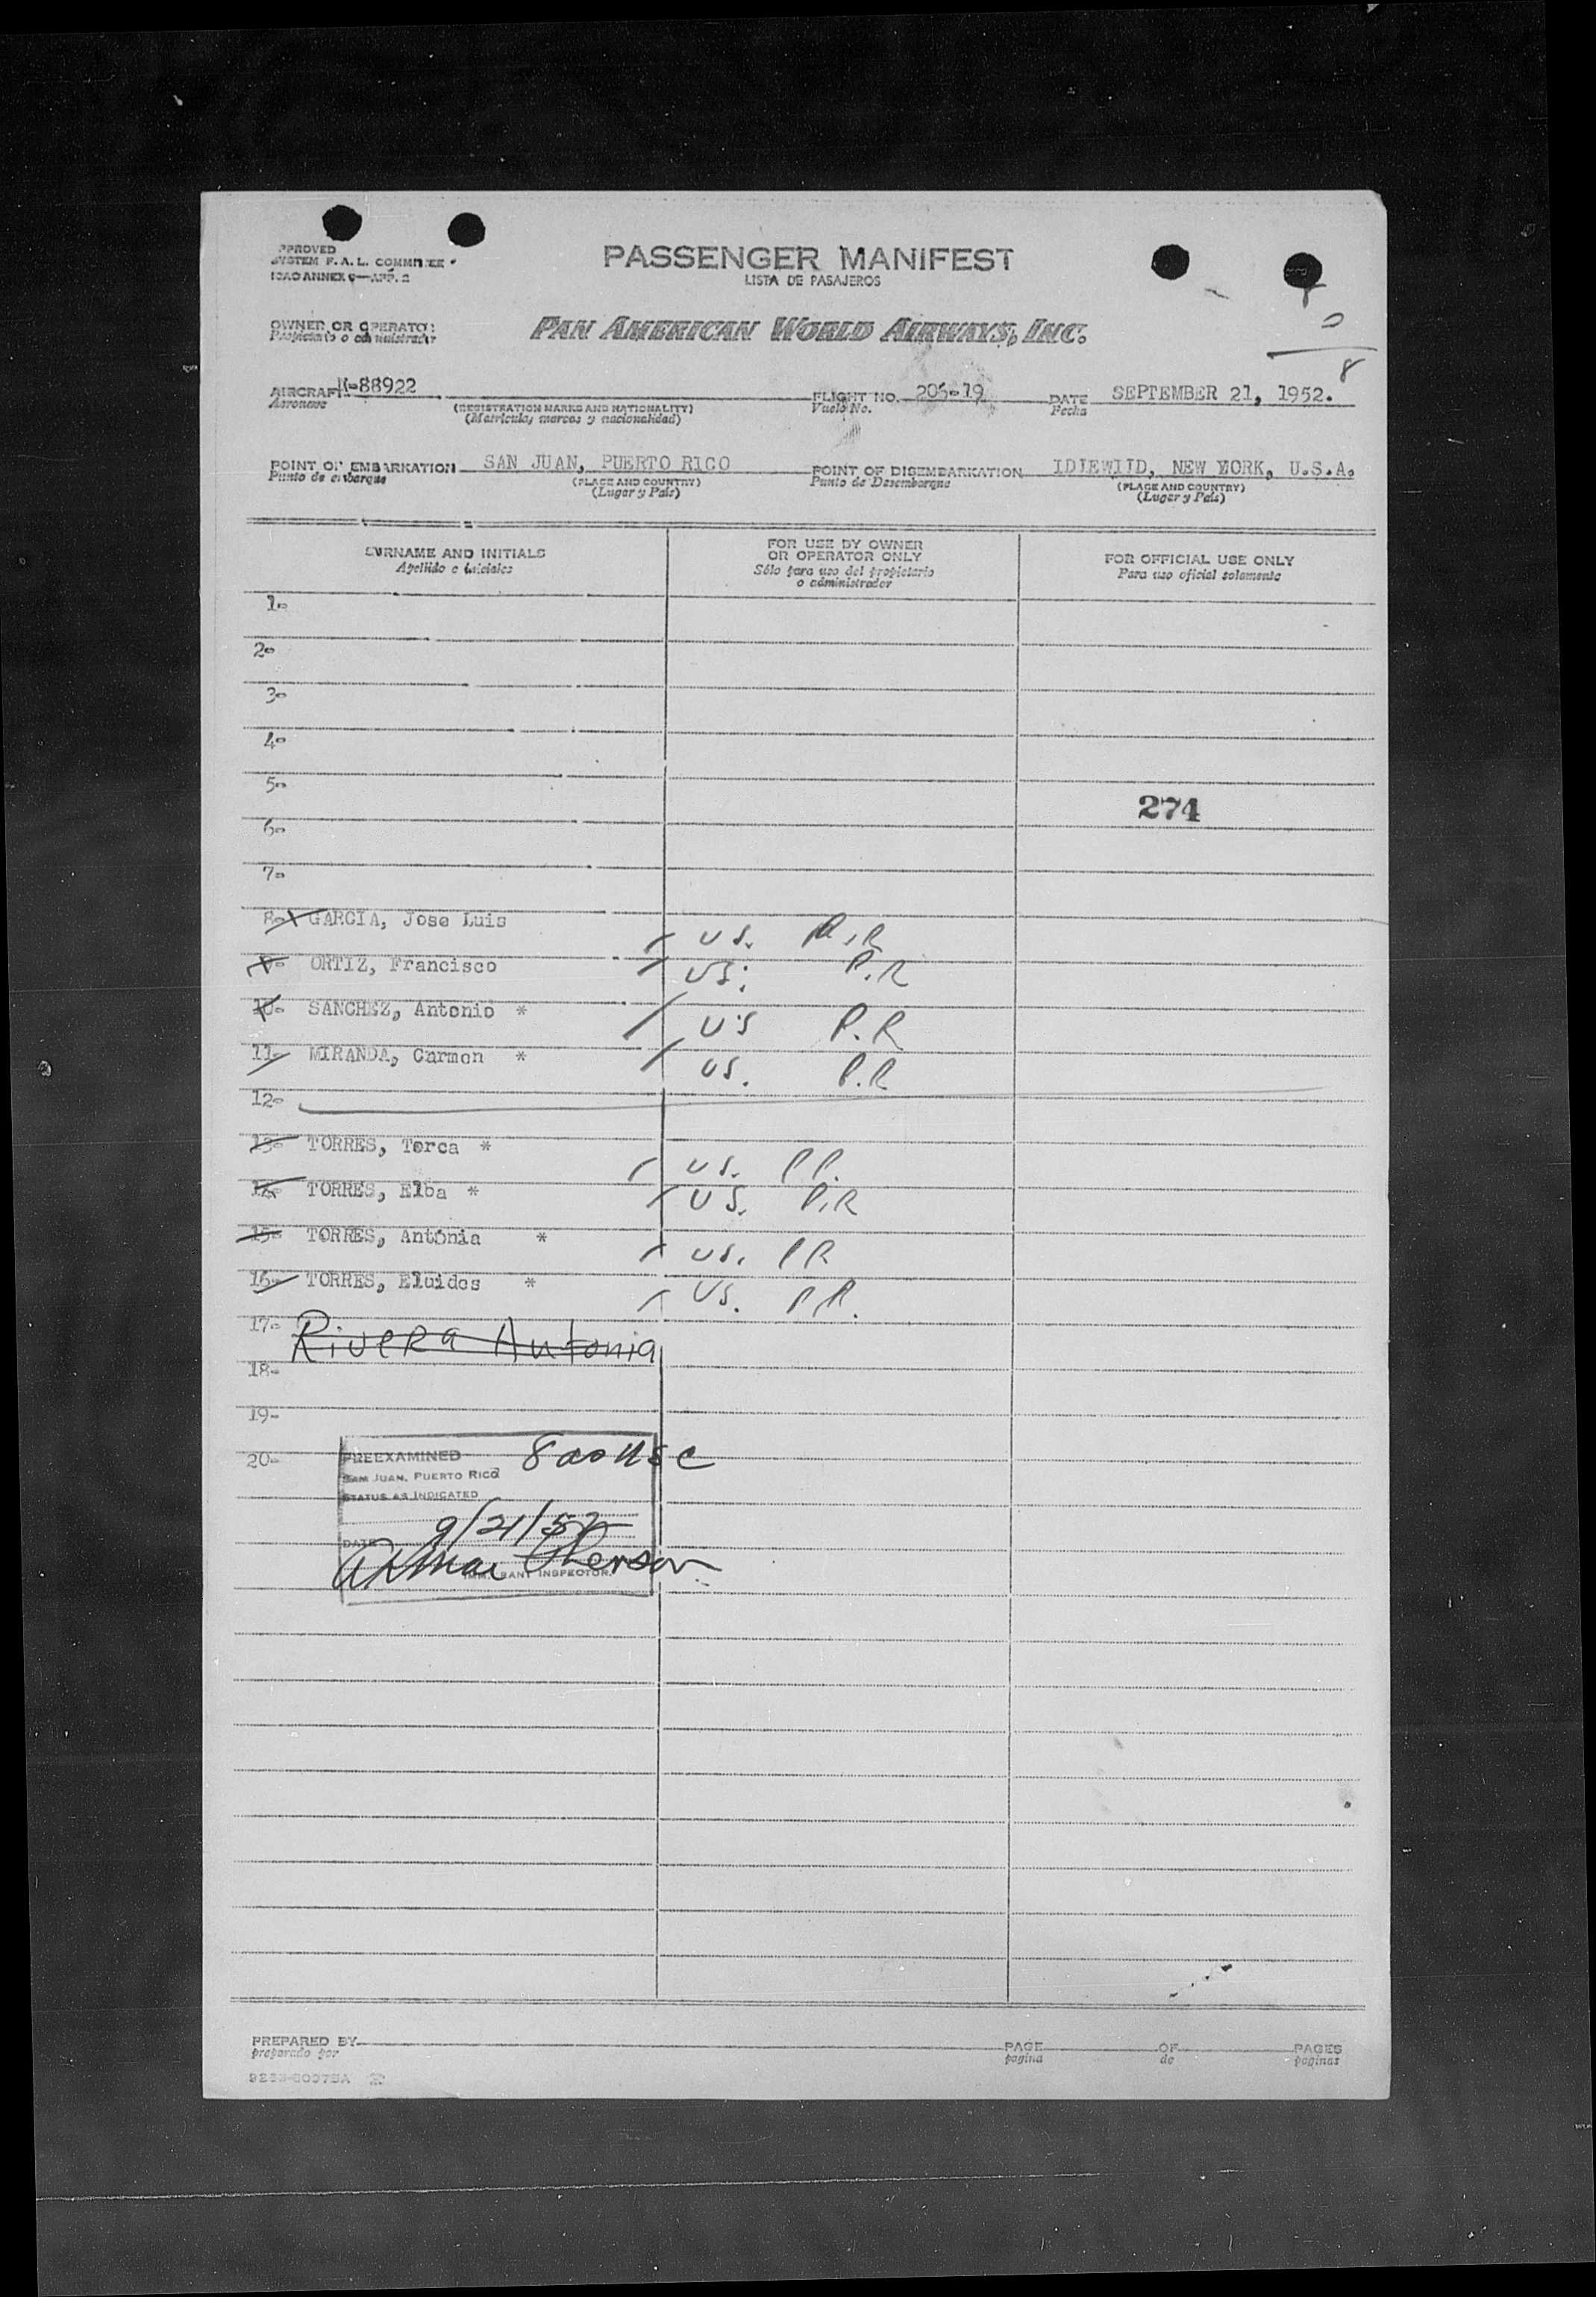 PPROVED
SYSTEM F. A. L. COMMITTEE
ICAO ANNEX 9—APP. 2
PASSENGER MANIFEST
LISTA DE PASAJEROS
OWNER OR OPERATOR
Propietario o administrador
PAN AMERICAN WORLD AIRWAYS, INC.
8
AIRCRAFT N-88922 FLIGHT NO. 206-19 DATE SEPTEMBER 21, 1952.
Aeronave (REGISTRATION MARKS AND NATIONALITY) Vuelo No. Fecha
(Matrícula, marcas y nacionalidad)
POINT OF EMBARKATION SAN JUAN, PUERTO RICO POINT OF DISEMBARKATION IDLEWILD, NEW YORK, U.S.A.
Punto de embarque (PLACE AND COUNTRY) Punto de Desembarque (PLACE AND COUNTRY)
(Lugar y País) (Lugar y País)
SURNAME AND INITIALS FOR USE BY OWNER OR OPERATOR ONLY FOR OFFICIAL USE ONLY
Apellido e iniciales Sólo para uso del propietario o administrador Para uso oficial solamente
1-
2-
3-
4-
5-
274
6-
7-
8- GARCIA, Jose Luis US. P.R
9- ORTIZ, Francisco US. P.R
10- SANCHEZ, Antonio * US P.R
11- MIRANDA, Carmen * US. P.R
12-
13- TORRES, Terca * US. PR.
14- TORRES, Elba * US. P.R
15- TORRES, Antonia * US. PR
16- TORRES, Eluides * US. PR.
17- Rivera Antonia
18-
19-
20- PREEXAMINED 8 USC
SAN JUAN, PUERTO RICO
STATUS AS INDICATED
DATE 9/21/52
IMMIGRANT INSPECTOR
PREPARED BY PAGE OF PAGES
preparado por pagina de paginas